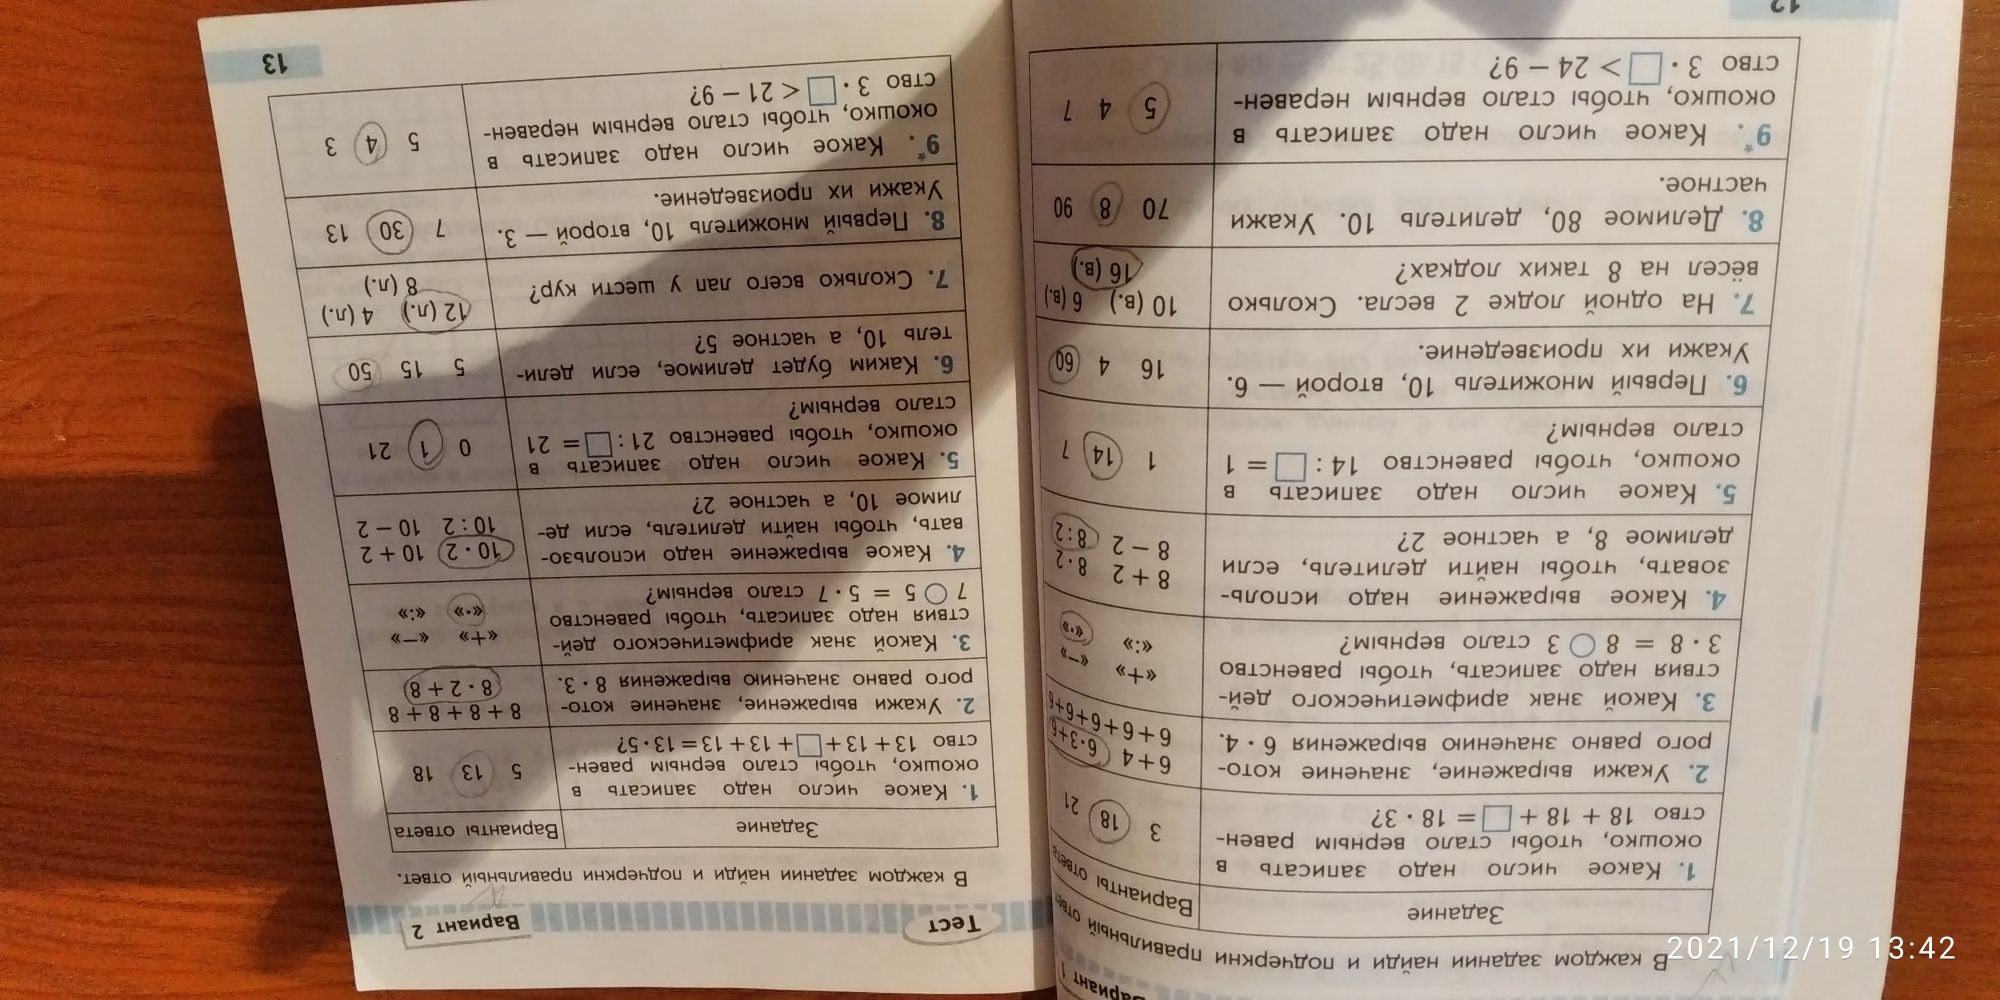 Вариант 1
В каждом задании найди и подчеркни правильный ответ
Задание
Варианты ответа
1. Какое число надо записать в
окошко, чтобы стало верным равен-
ство 18 + 18 + □ = 18 · 3?
3 18 21
2. Укажи выражение, значение кото-
рого равно значению выражения 6 · 4.
6 + 4 6·3+6
6+6+6+6+6
3. Какой знак арифметического дей-
ствия надо записать, чтобы равенство
3 · 8 = 8 ○ 3 стало верным?
«+» «−»
«:» «·»
4. Какое выражение надо исполь-
зовать, чтобы найти делитель, если
делимое 8, а частное 2?
8 + 2 8·2
8 − 2 8:2
5. Какое число надо записать в
окошко, чтобы равенство 14 : □ = 1
стало верным?
1 14 7
6. Первый множитель 10, второй — 6.
Укажи их произведение.
16 4 60
7. На одной лодке 2 весла. Сколько
вёсел на 8 таких лодках?
10 (в.) 6 (в.)
16 (в.)
8. Делимое 80, делитель 10. Укажи
частное.
70 8 90
9*. Какое число надо записать в
окошко, чтобы стало верным неравен-
ство 3 · □ > 24 − 9?
5 4 7
12
Тест
Вариант 2
В каждом задании найди и подчеркни правильный ответ.
Задание
Варианты ответа
1. Какое число надо записать в
окошко, чтобы стало верным равен-
ство 13 + 13 + □ + 13 + 13 = 13·5?
5 13 18
2. Укажи выражение, значение кото-
рого равно значению выражения 8 · 3.
8 + 8 + 8 + 8
8 · 2 + 8
3. Какой знак арифметического дей-
ствия надо записать, чтобы равенство
7 ○ 5 = 5 · 7 стало верным?
«+» «−»
«·» «:»
4. Какое выражение надо использо-
вать, чтобы найти делитель, если де-
лимое 10, а частное 2?
10 · 2 10 + 2
10 : 2 10 − 2
5. Какое число надо записать в
окошко, чтобы равенство 21 : □ = 21
стало верным?
0 1 21
6. Каким будет делимое, если дели-
тель 10, а частное 5?
5 15 50
7. Сколько всего лап у шести кур?
12 (л.) 4 (л.)
8 (л.)
8. Первый множитель 10, второй — 3.
Укажи их произведение.
7 30 13
9*. Какое число надо записать в
окошко, чтобы стало верным неравен-
ство 3 · □ < 21 − 9?
5 4 3
13
2021/12/19 13:42